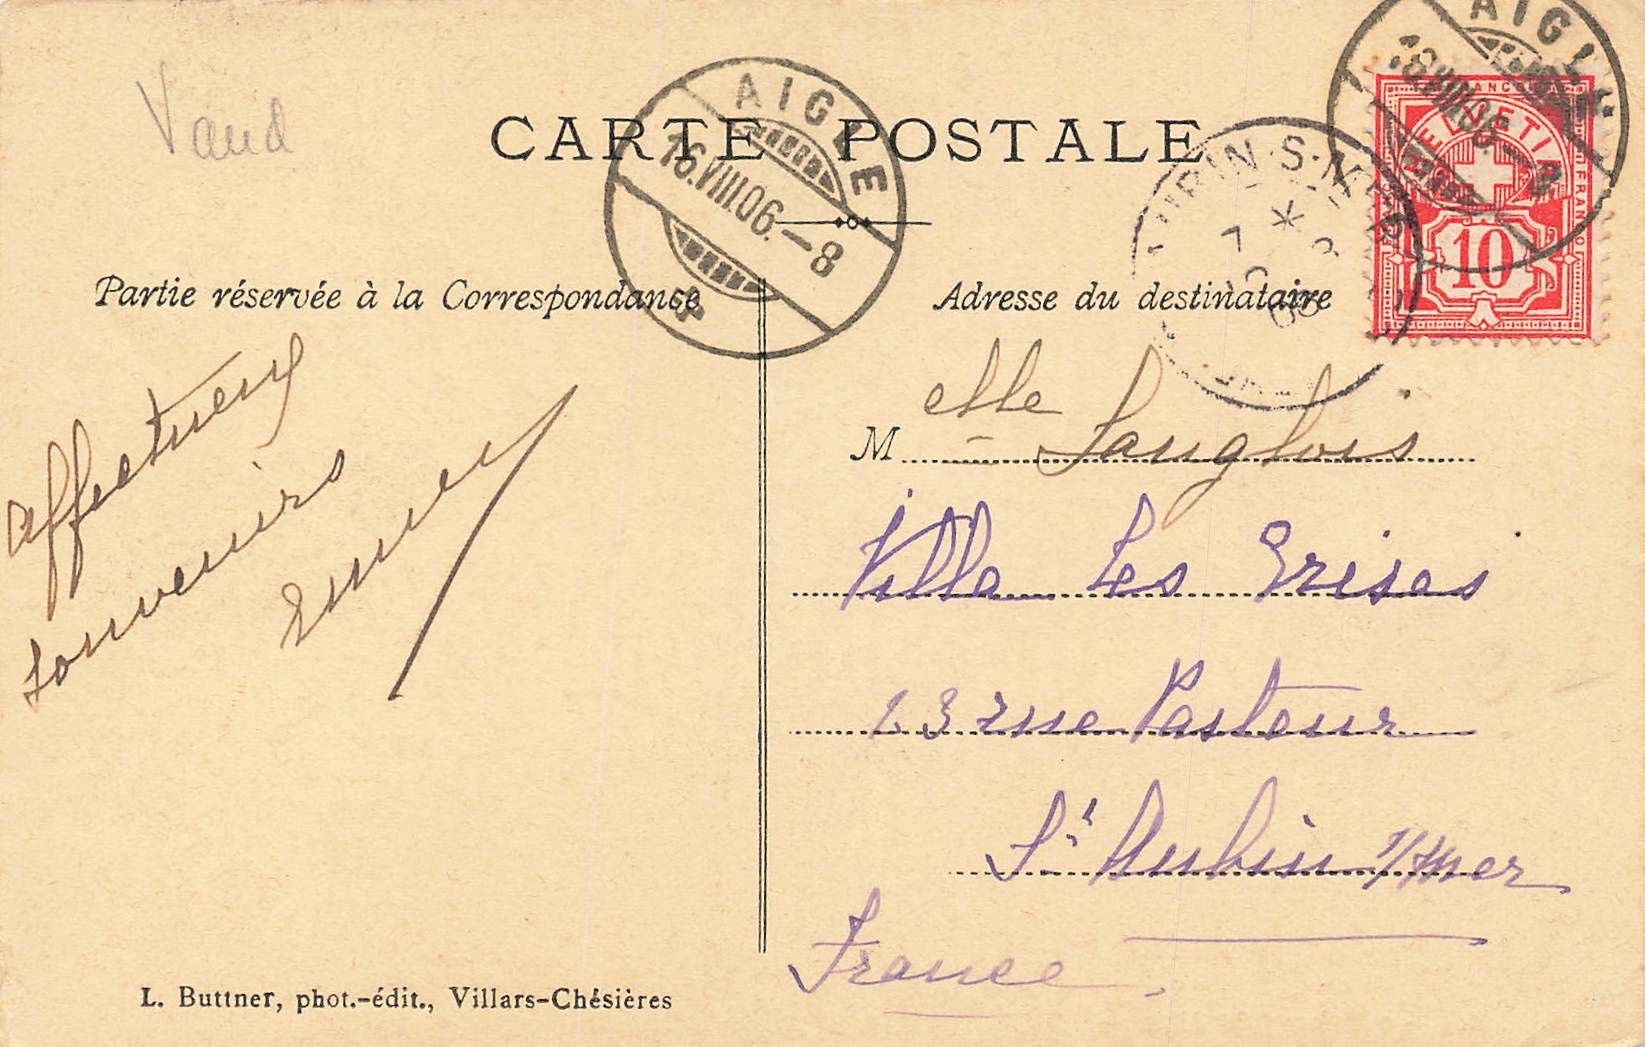 Vaud
CARTE POSTALE
AIGLE
16.VIII.06.-8
AIGLE
FRANCO
HELVETIA
FRANCO
10
AUBIN-S-MER
7 *
8
06
Partie réservée à la Correspondance
Adresse du destinataire
affectueux
souvenirs
M elle Langlois
Villa Les Grises
23 rue Pasteur
St Aubin s/mer
France
L. Buttner, phot.-édit., Villars-Chésières